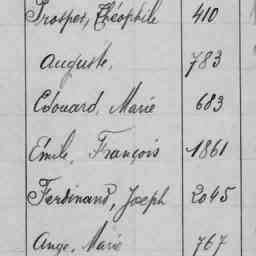 Prosper, Théophile 410
Auguste, 783
Edouard, Marie 683
Emile, François 1861
Ferdinand, Joseph 2045
Ange, Marie 767